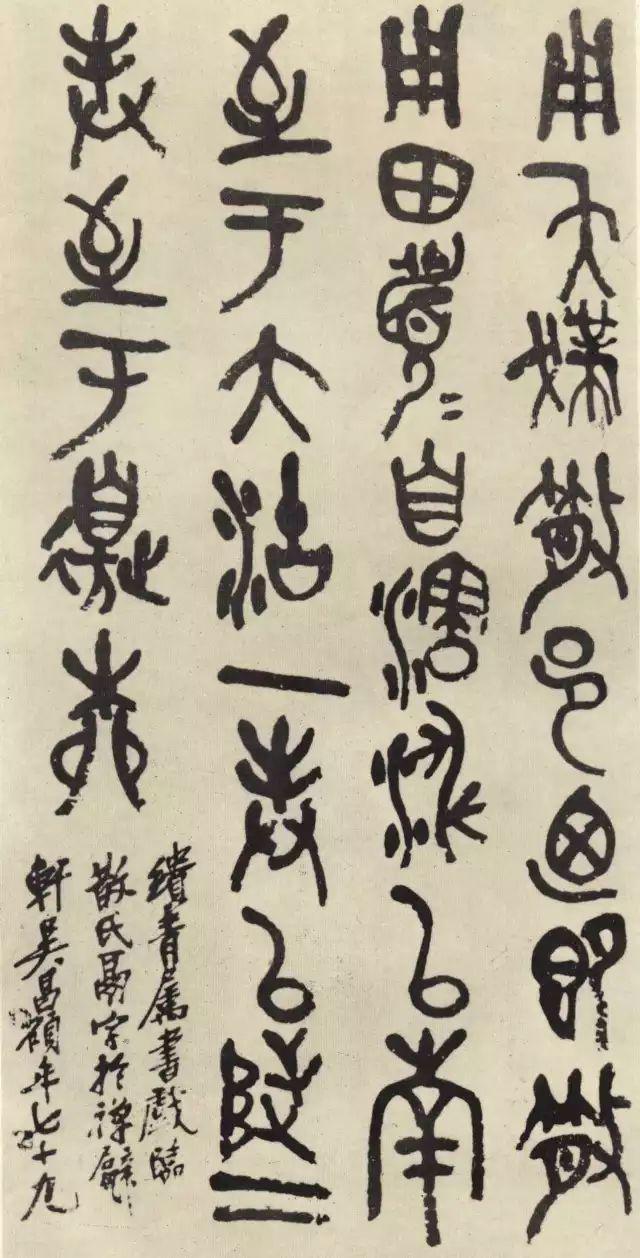 用夨撲散邑迺即散
用田眉〻自瀗涉以南
至于大沽一封以陟二
封至于邊柳
繢青屬書戲臨
散氏鬲字於禪甓
軒吳昌碩年七十九